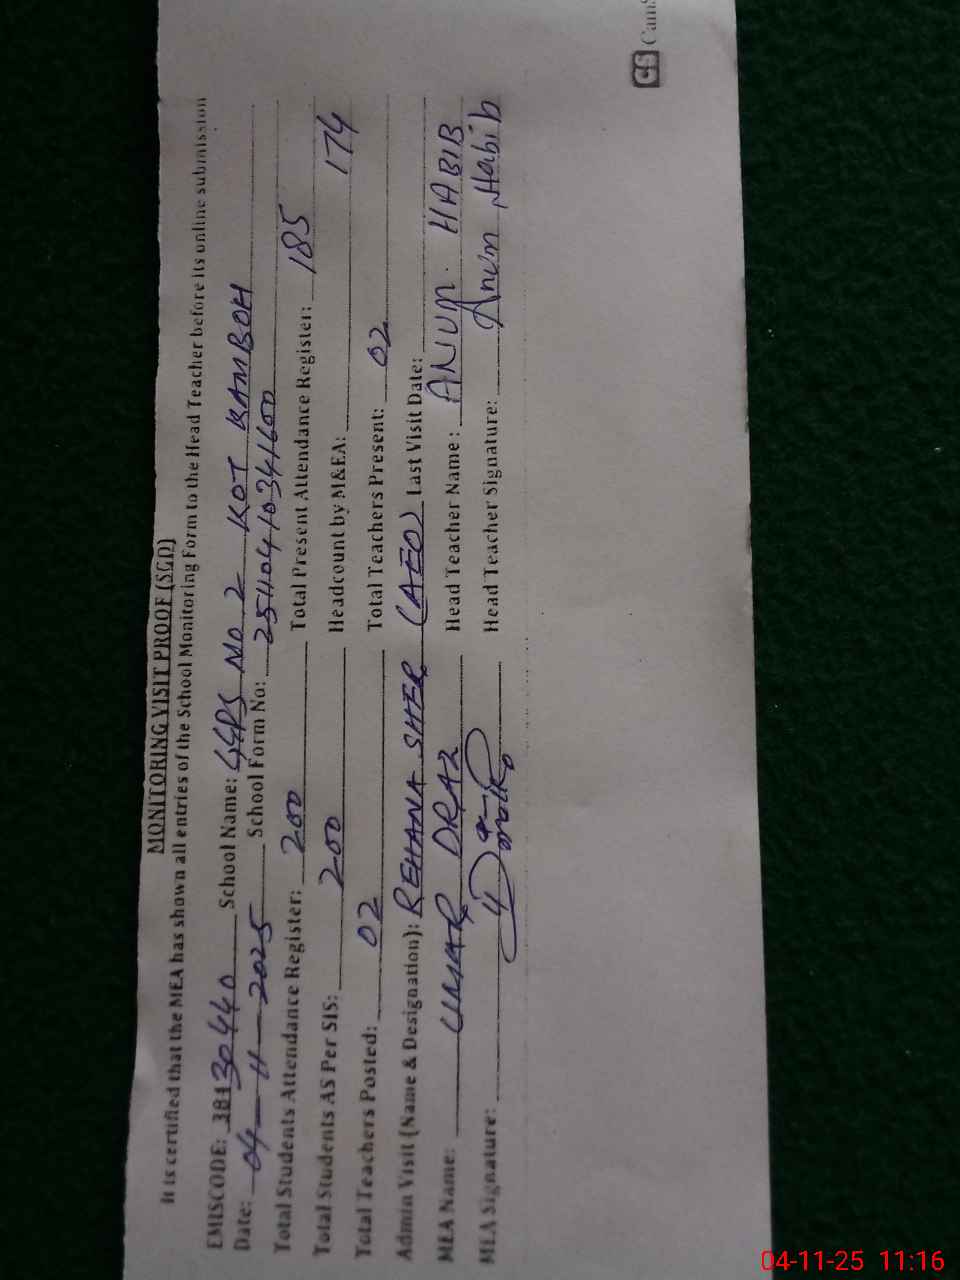 MONITORING VISIT PROOF (SGD)
It is certified that the MEA has shown all entries of the School Monitoring Form to the Head Teacher before its online submission
EMISCODE: 38130440 School Name: GGPS NO 2 KOT KAMBOH
Date: 04-11-2025 School Form No: 2511040410341600
Total Students Attendance Register: 200 Total Present Attendance Register: 185
Total Students AS Per SIS: 200 Headcount by M&EA: 174
Total Teachers Posted: 02 Total Teachers Present: 02
Admin Visit (Name & Designation): REHANA SHER (AEO) Last Visit Date:
MEA Name: UMAR DRAZ Head Teacher Name: ANUM HABIB
MEA Signature: Head Teacher Signature: Anum Habib
CS CamS
04-11-25 11:16